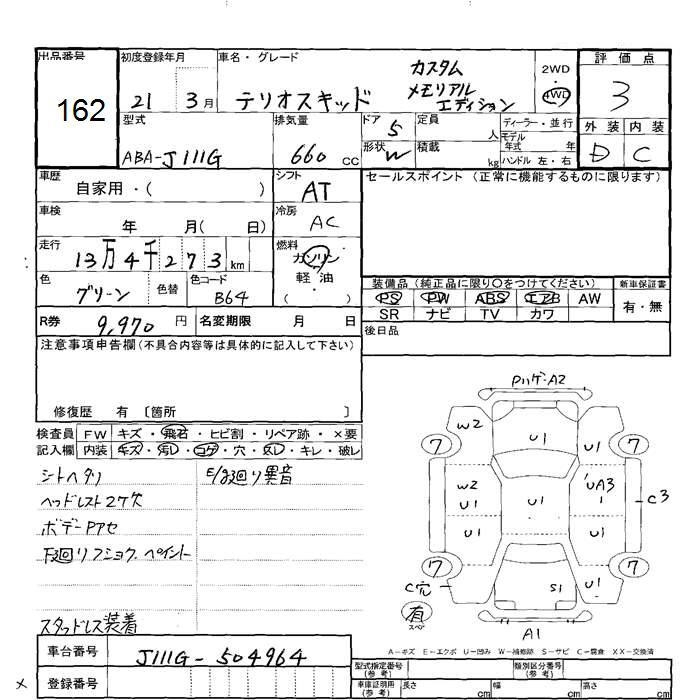 出品番号
162
初度登録年月
21 3月
車名・グレード
テリオスキッド
カスタム
メモリアル
エディション
2WD
4WD
評価点
3
外装 内装
D C
型式
ABA-J111G
排気量
660 cc
ドア 5
形状 W
定員 人
積載 kg
ディーラー・並行
モデル年式 年
ハンドル 左・右
車歴
自家用・( )
シフト
AT
セールスポイント (正常に機能するものに限ります)
車検
年 月( 日)
冷房
AC
走行
13万4千273km
燃料
ガソリン
軽油
( ・ )
色
グリーン
色替
色コード
B64
装備品 (純正品に限り○をつけてください)
PS PW ABS エアB AW
SR ナビ TV カワ
新車保証書
有・無
R券 9,970円
名変期限 月 日
後日品
注意事項申告欄(不具合内容等は具体的に記入して下さい)
修復歴 有 〔箇所 〕
検査員
記入欄
FW キズ・飛石・ヒビ割・リペア跡・×要
内装 キズ・汚レ・コゲ・穴・スレ・キレ・破レ
シートヘタリ
ヘッドレスト2ケ欠
ボデーPアセ
下廻リフショク、ペイント
スタッドレス装着
E/g廻り異音
Pハゲ・A2
W2
U1
U1
7
7
W2
U1
U1
UA3
1
C3
U1
U1
7
7
C穴
S1
U1
有
スペア
A1
A-キズ E-エクボ U-凹み W-補修跡 S-サビ C-腐食 XX-交換済
車台番号
J111G-504964
登録番号
×
型式指定番号
(参考)
類別区分番号
(参考)
車庫証明用
(参考)
長さ cm
幅 cm
高さ cm